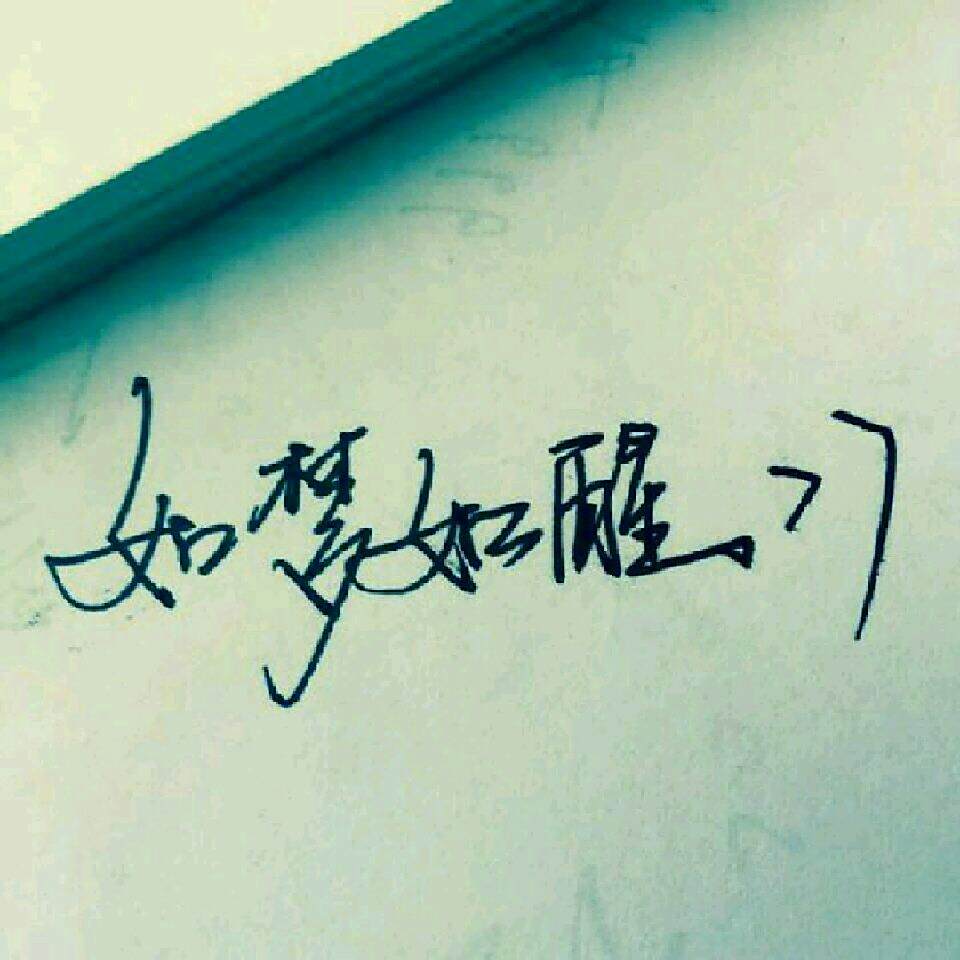 如梦如醒